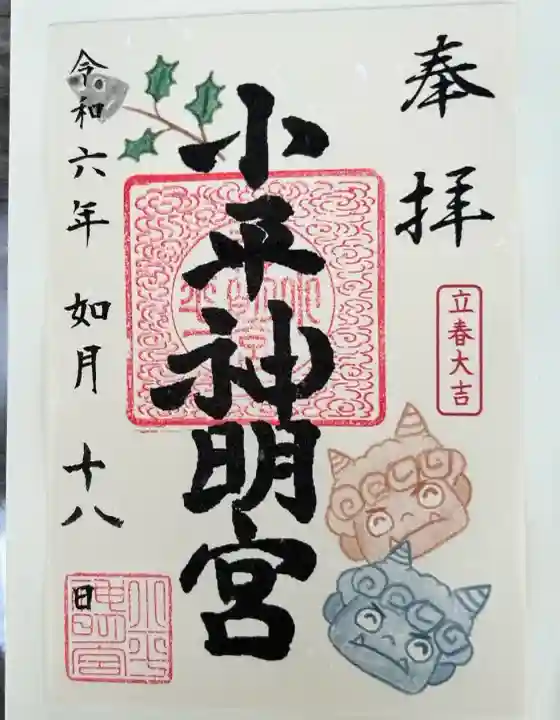 奉拝
立春大吉
小平神明宮
令和六年 如月 十八日
小平神明宮